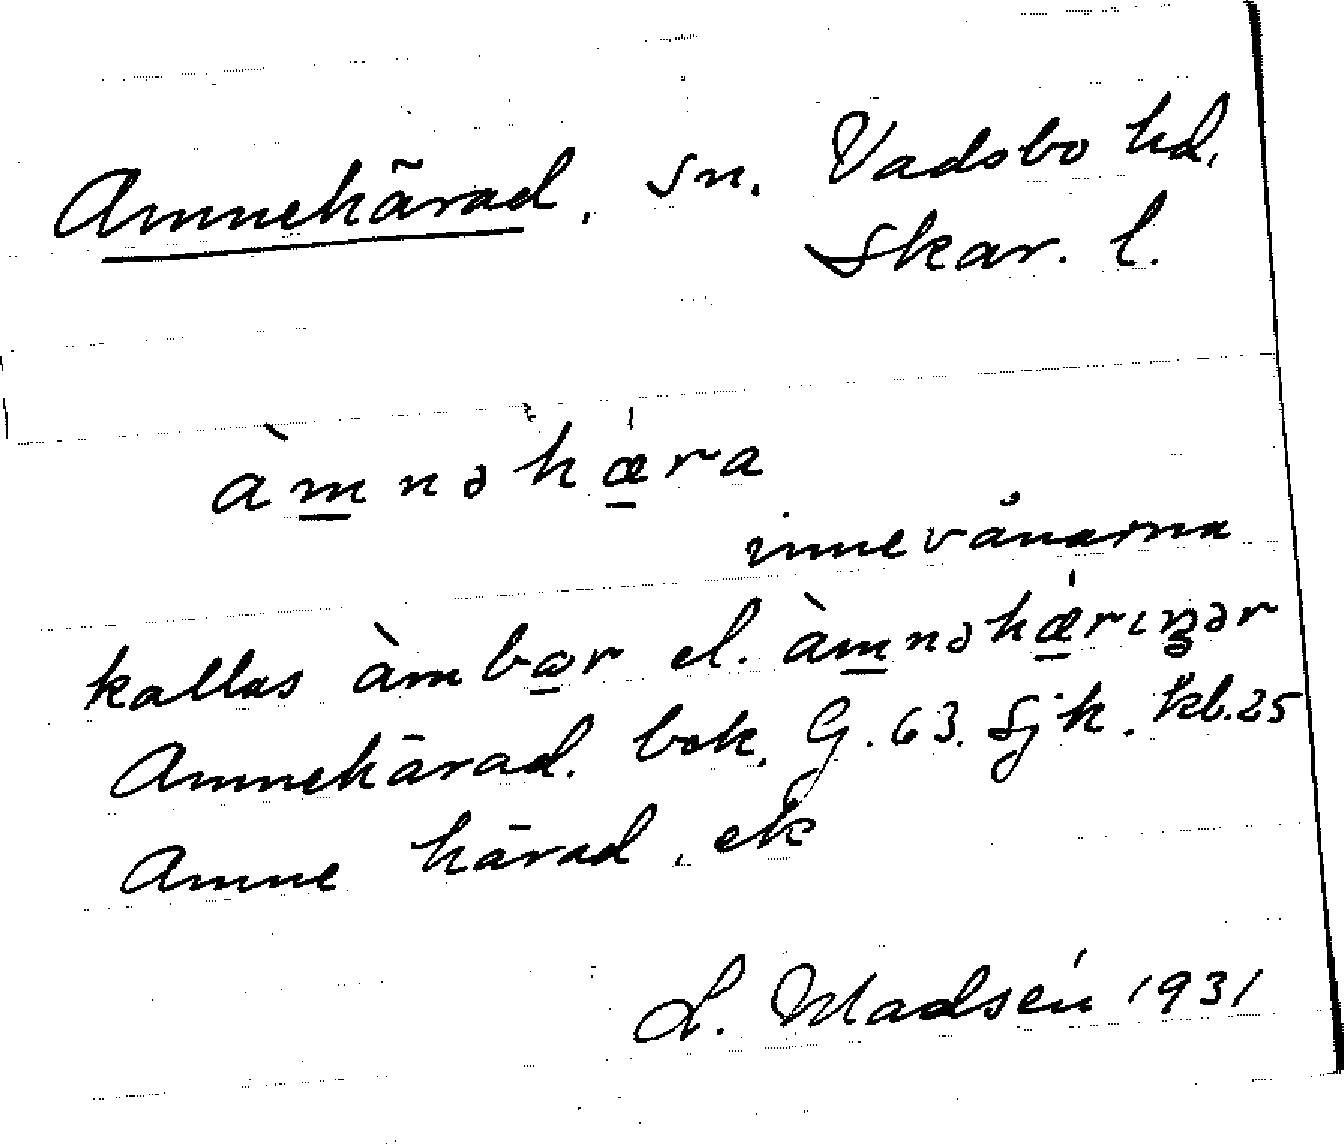 Amnehärad, sn. Vadsbo hd,
Skar. l.
àmnəhæ̀ra
innevånarna
kallas àmbær el. àmnəhærıŋər
Amnehärad. bok. G. 63. Sjk. kb. 25
Amne härad, ek
L. Madsén 1931